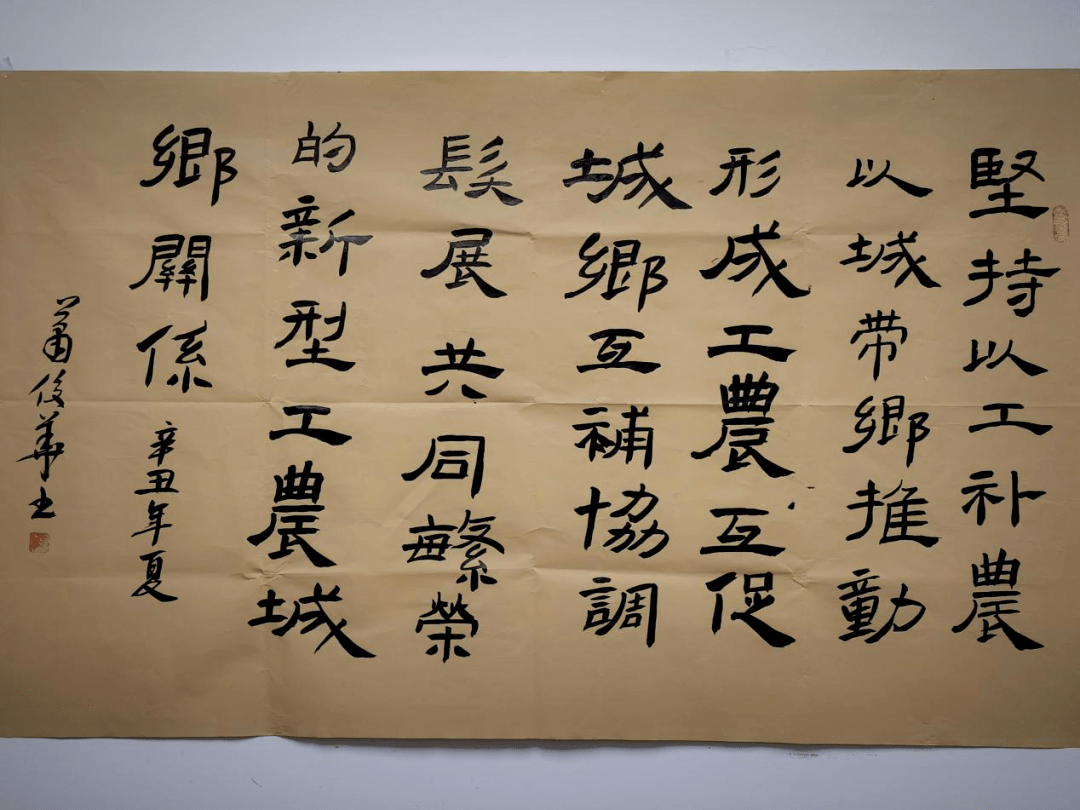 堅持以工补農
以城带鄉推動
形成工農互促
城鄉互補協調
髮展共同繁榮
的新型工農城
鄉關係
辛丑年夏
蕭俊華书